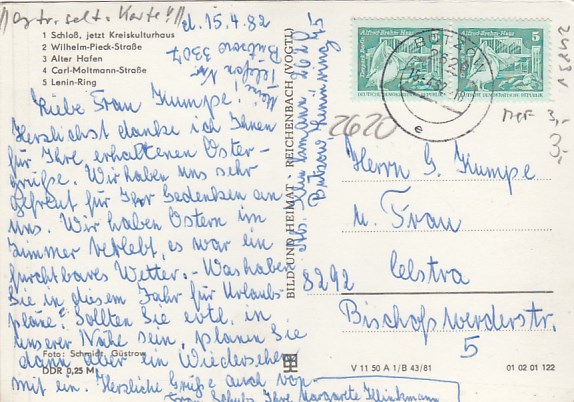 d. 15.4.82
1 Schloß, jetzt Kreiskulturhaus
2 Wilhelm-Pieck-Straße
3 Alter Hafen
4 Carl-Moltmann-Straße
5 Lenin-Ring
Meine
Telefon Nr
Bützow 3307
Liebe Frau Kumpe!
Herzlichst danke ich Ihnen
für Ihre erhaltenen Oster-
grüße. Wir haben uns sehr
gefreut für Ihr Gedenken an
uns. Wir haben Ostern im
Zimmer verlebt, es war ein
furchtbares Wetter. - Was haben
Sie in diesem Jahr für Urlaubs-
pläne? Sollten Sie evtl. in
unserer Nähe sein, planen Sie
dann aber ein Wiedersehen
mit ein. Herzliche Grüße auch von
Frau Schulz Ihre Margarete Kleinkmann
Foto: Schmidt, Güstrow
DDR 0,25 M
BILD UND HEIMAT · REICHENBACH (VOGTL)
Abs. 2620
Bützow
Alfred-Brehm-Haus
5
Tierpark Berlin
DEUTSCHE DEMOKRATISCHE REPUBLIK
Alfred-Brehm-Haus
5
DEUTSCHE DEMOKRATISCHE REPUBLIK
BÜTZOW
2620
e
2620
3,-
3,-
Herrn G. Kumpe
u. Frau
8292 Elstra
Bischofswerderstr.
5
V 11 50 A 1/B 43/81
01 02 01 122